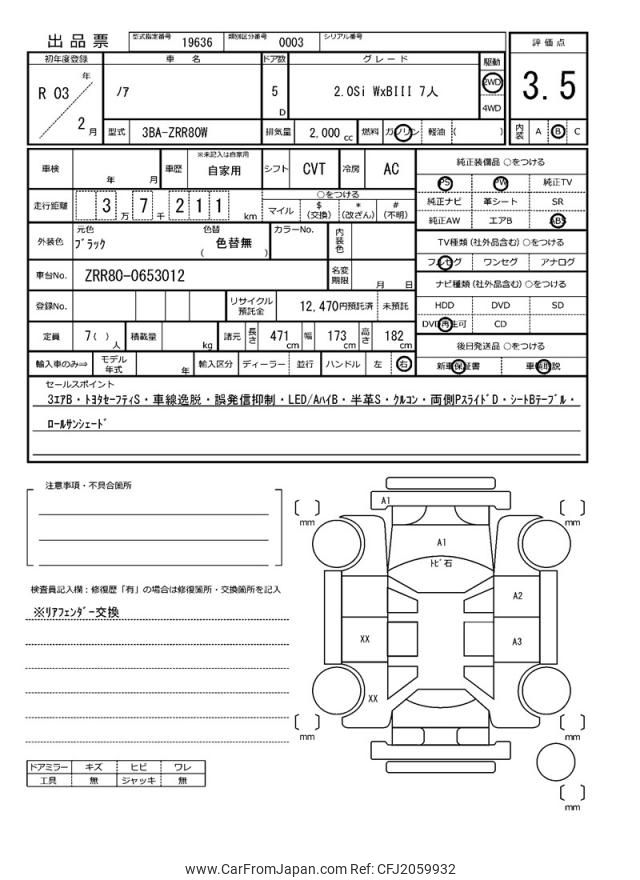 出品票 型式指定番号 19636 類別区分番号 0003 シリアル番号
初年度登録 車名 ドア数 グレード 駆動 評価点
R 03 年 2 月 ノア 5 D 2.0Si WxBIII 7人 2WD 4WD 3.5
型式 3BA-ZRR80W 排気量 2,000 cc 燃料 ガソリン 軽油 ( ) 内装 A B C
車検 年 月 車歴 ※未記入は自家用 自家用 シフト CVT 冷房 AC
走行距離 3 万 7 千 2 1 1 km ○をつける
マイル $ (交換) * (改ざん) # (不明)
外装色 元色 ブラック 色替 ( 色替無 ) カラーNo. 内装色
車台No. ZRR80-0653012 名変期限 月 日
登録No. リサイクル預託金 12,470円預託済 未預託
定員 7( ) 人 積載量 kg 諸元 長さ 471 cm 幅 173 cm 高さ 182 cm
輸入車のみ⇒ モデル年式 年 輸入区分 ディーラー 並行 ハンドル 左 右
純正装備品 ○をつける
PS PW 純正TV
純正ナビ 革シート SR
純正AW エアB ABS
TV種類 (社外品含む) ○をつける
フルセグ ワンセグ アナログ
ナビ種類 (社外品含む) ○をつける
HDD DVD SD
DVD再生可 CD
後日発送品 ○をつける
新車保証書 車輌取説
セールスポイント
3ｴｱB・ﾄﾖﾀｾｰﾌﾃｨS・車線逸脱・誤発信抑制・LED/AﾊｲB・半革S・ｸﾙｺﾝ・両側PｽﾗｲﾄﾞD・ｼｰﾄBﾃｰﾌﾞﾙ・
ﾛｰﾙｻﾝｼｪｰﾄﾞ
注意事項・不具合箇所
検査員記入欄：修復歴「有」の場合は修復箇所・交換箇所を記入
※ﾘｱﾌｪﾝﾀﾞｰ交換
ドアミラー キズ ヒビ ワレ
工具 無 ジャッキ 無
A1
mm mm
A1
ﾄﾋﾞ石
A2
XX A3
XX
mm mm
mm
www.CarFromJapan.com Ref: CFJ2059932